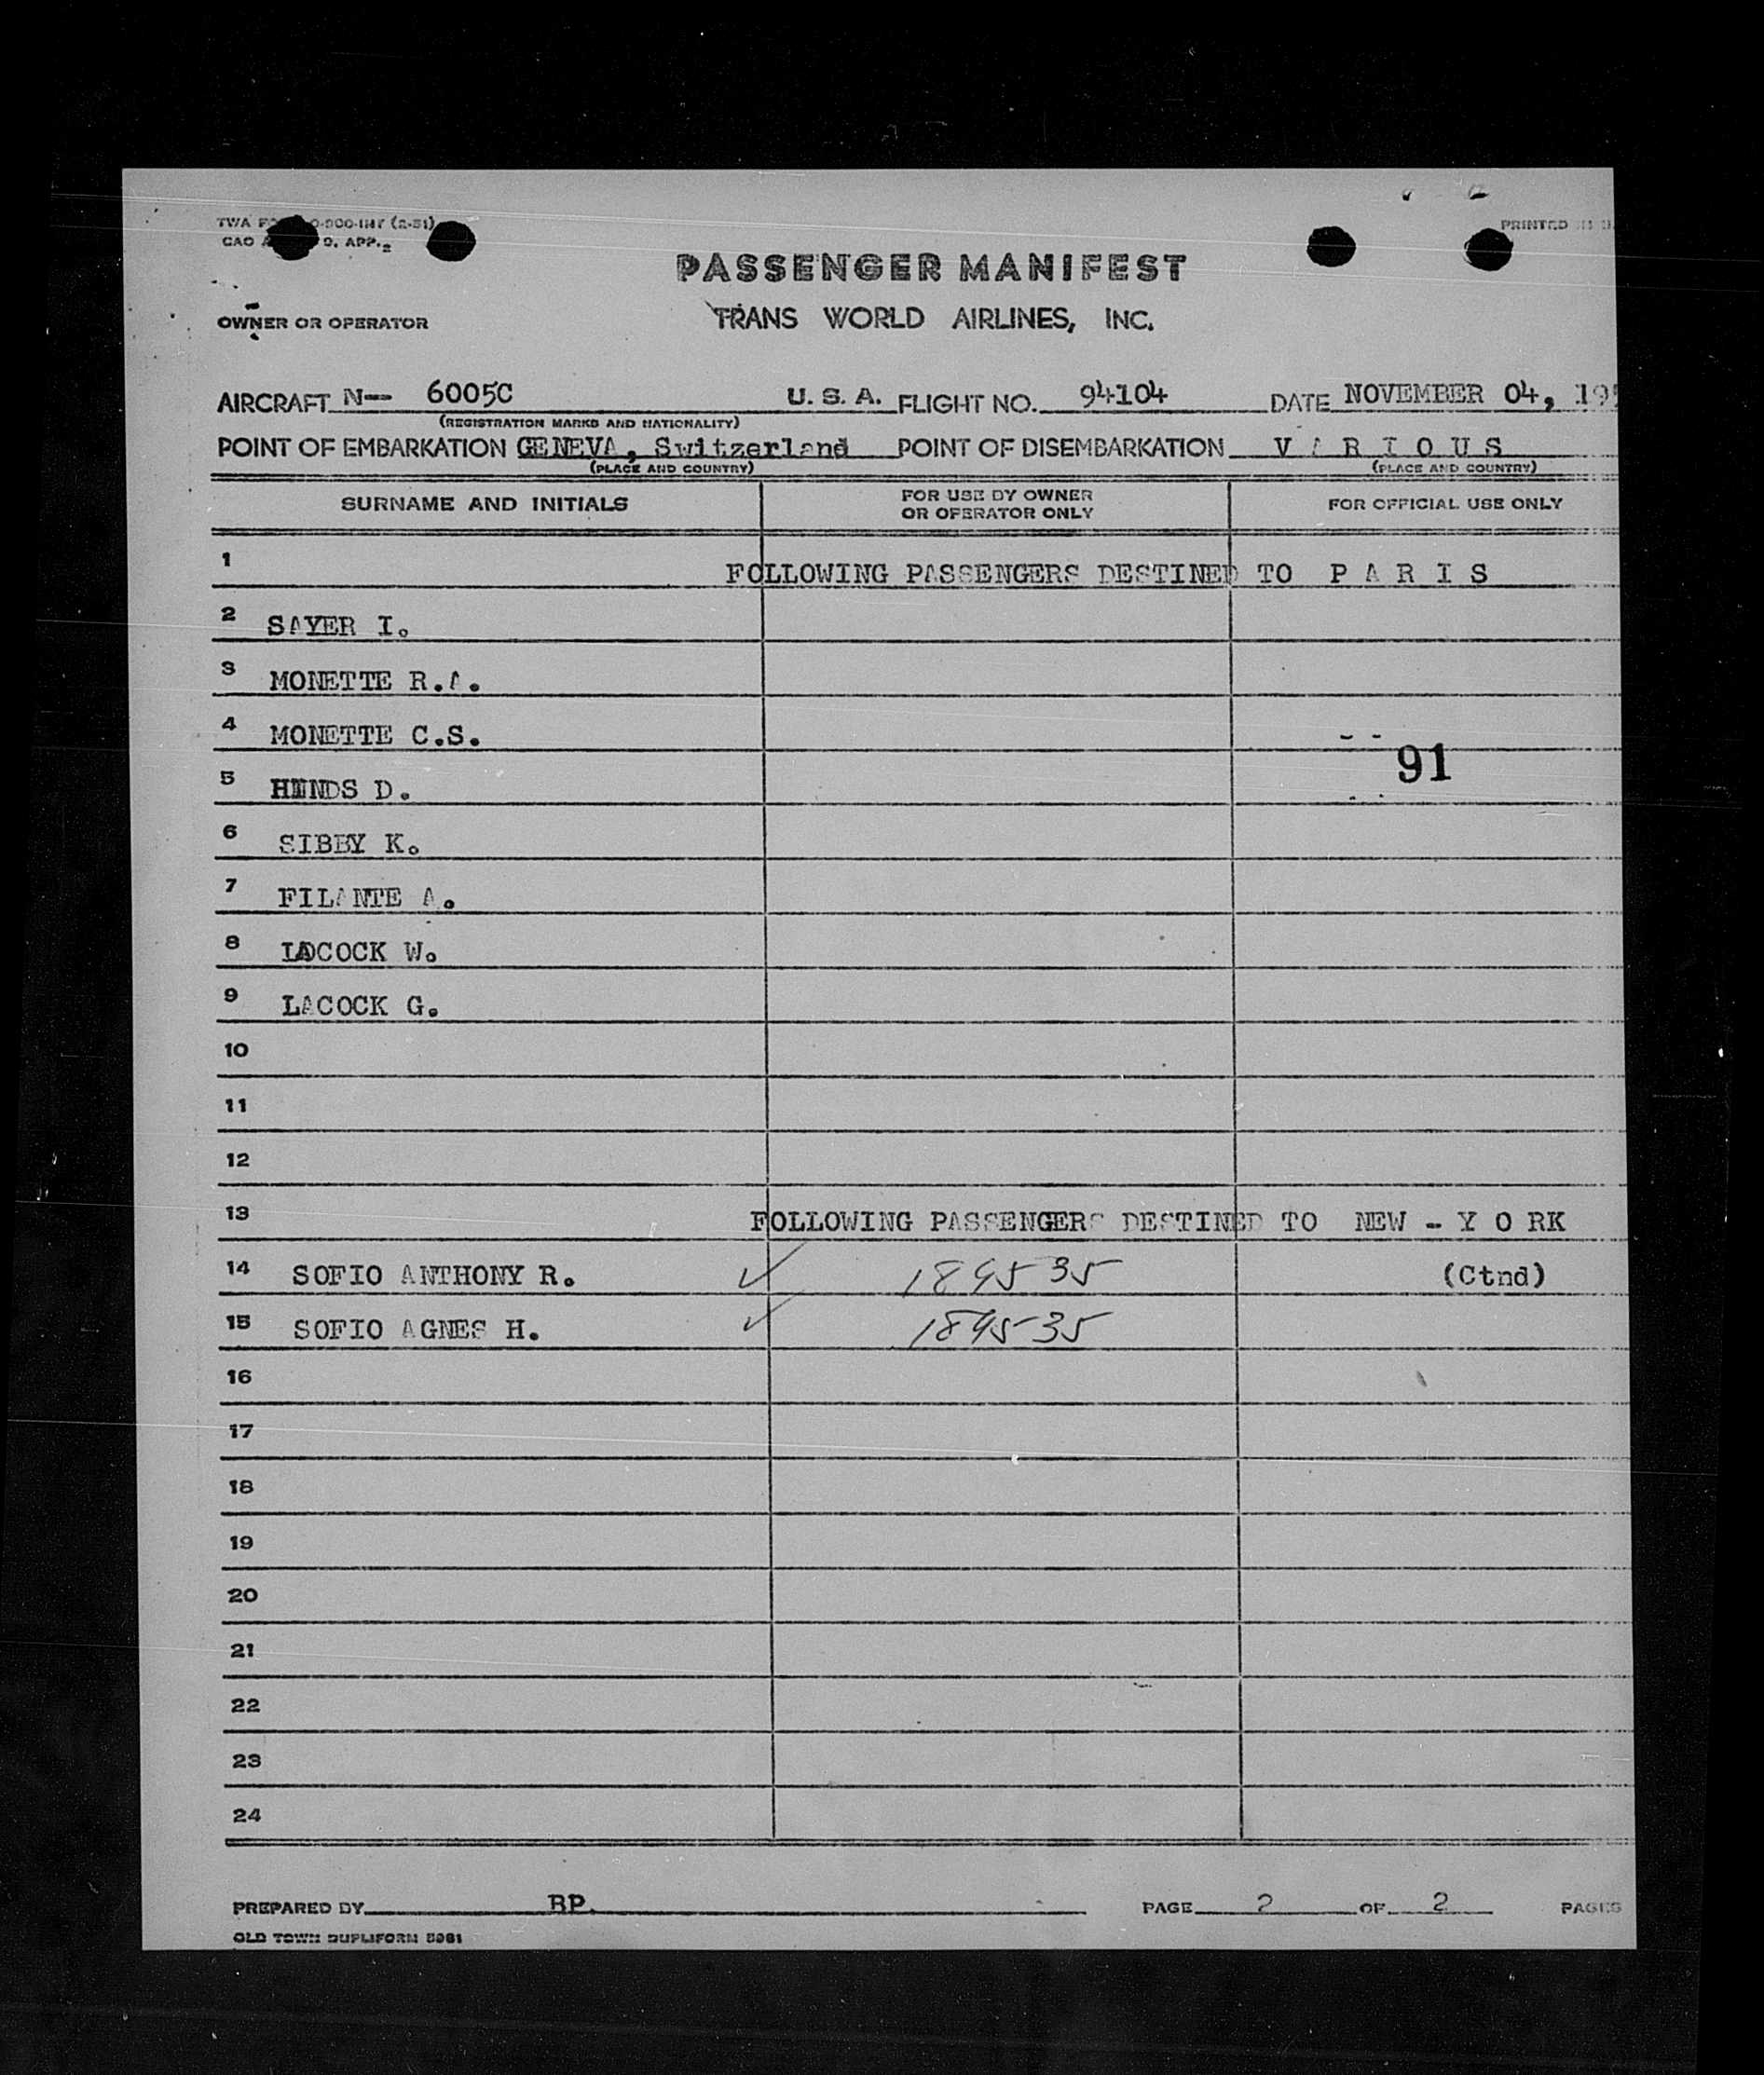 TWA 0-900-INT (2-51)
CAO 9, APP. 2
PRINTED
PASSENGER MANIFEST
OWNER OR OPERATOR TRANS WORLD AIRLINES, INC.
AIRCRAFT N-- 6005C U. S. A. FLIGHT NO. 94104 DATE NOVEMBER 04,
(REGISTRATION MARKS AND NATIONALITY)
POINT OF EMBARKATION GENEVA, Switzerland POINT OF DISEMBARKATION V A R I O U S
(PLACE AND COUNTRY) (PLACE AND COUNTRY)
SURNAME AND INITIALS FOR USE BY OWNER OR OPERATOR ONLY FOR OFFICIAL USE ONLY
1 FOLLOWING PASSENGERS DESTINED TO P A R I S
2 SAYER I.
3 MONETTE R.A.
4 MONETTE C.S.
91
5 D.
6 SIBBY K.
7 FILANTE A.
8 LACOCK W.
9 LACOCK G.
10
11
12
13 FOLLOWING PASSENGERS DESTINED TO NEW - Y O RK
14 SOFIO ANTHONY R. ✓ 189535 (Ctnd)
15 SOFIO AGNES H. ✓ 189535
16
17
18
19
20
21
22
23
24
PREPARED BY BP. PAGE 2 OF 2 PAGES
OLD TOWN DUPLIFORM 5981